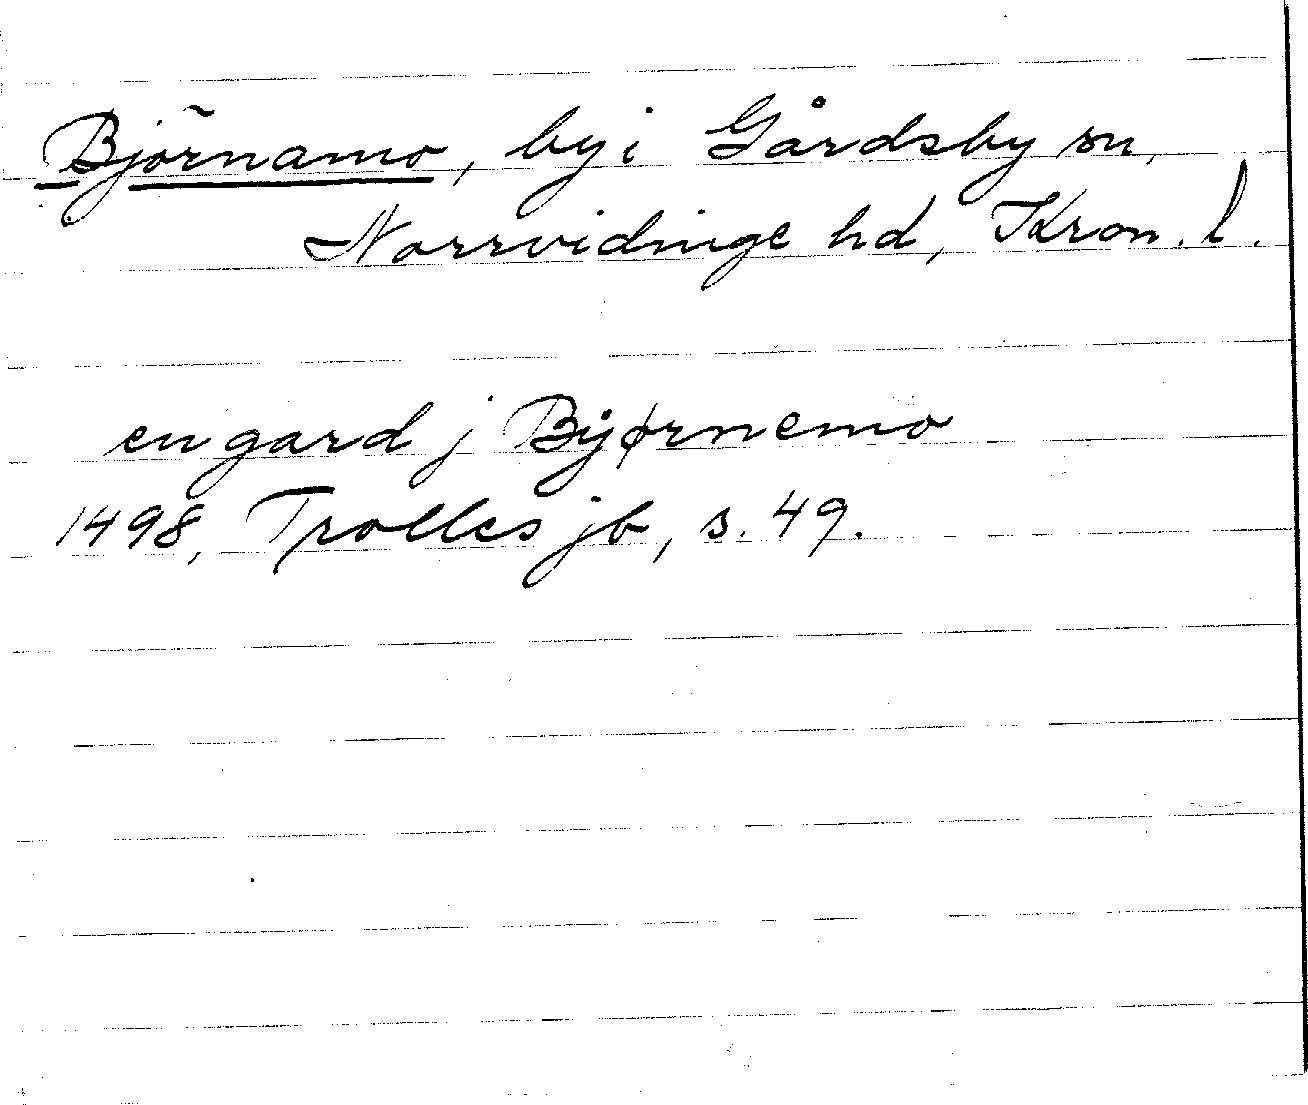 Björnamo, by i Gårdsby sn,
Norrvidinge hd, Kron. l.
en gard j Bijørnemo
1498, Trolles jb, s. 49.